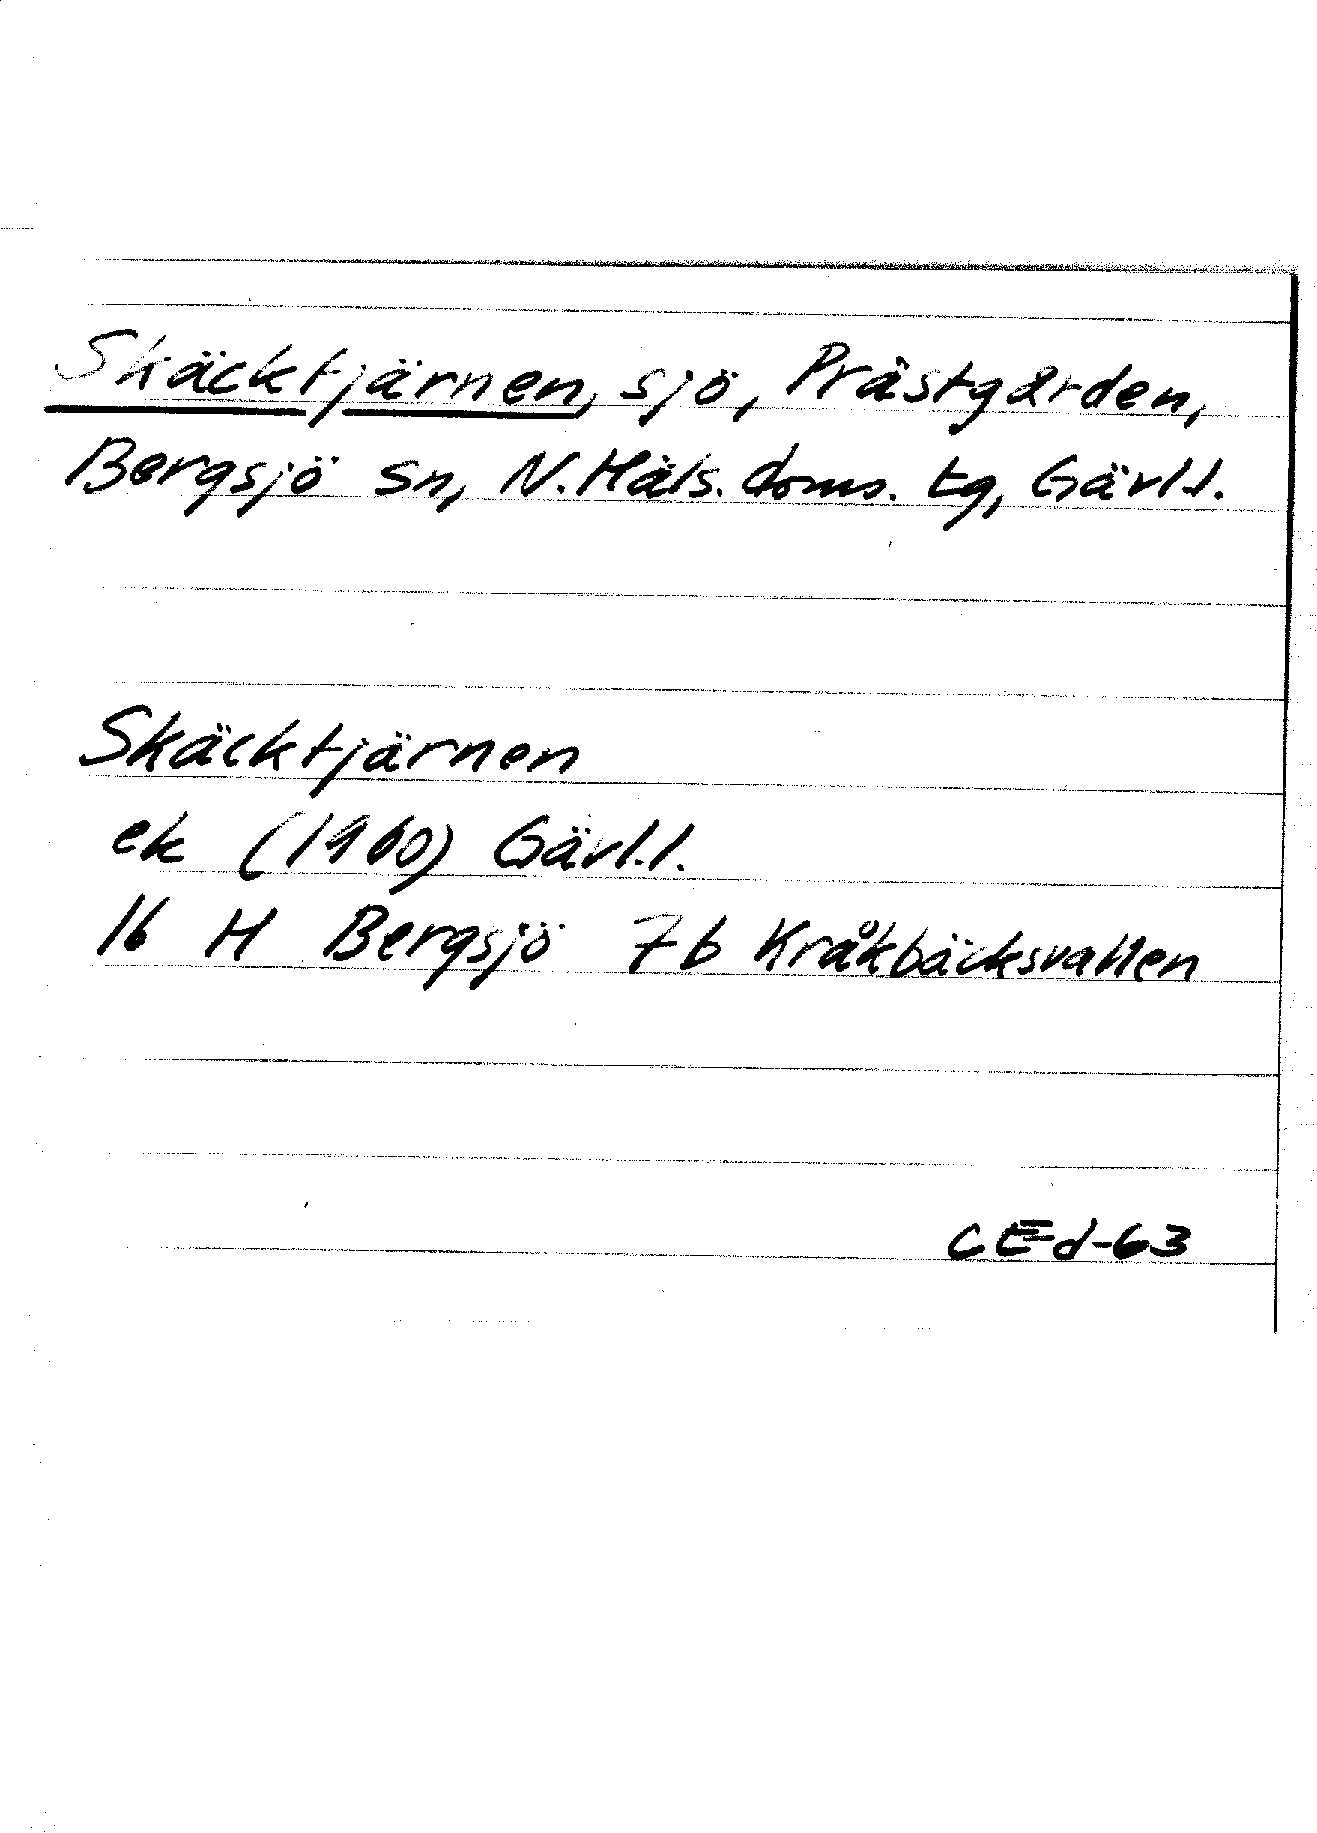 Skäcktjärnen, sjö, Prästgården,
Bergsjö sn, N. Häls. doms. tg, Gävl.l.
Skäcktjärnen
ek (1960) Gävl.l.
16 H Bergsjö 7b Kråkbäcksvallen
CEd-63